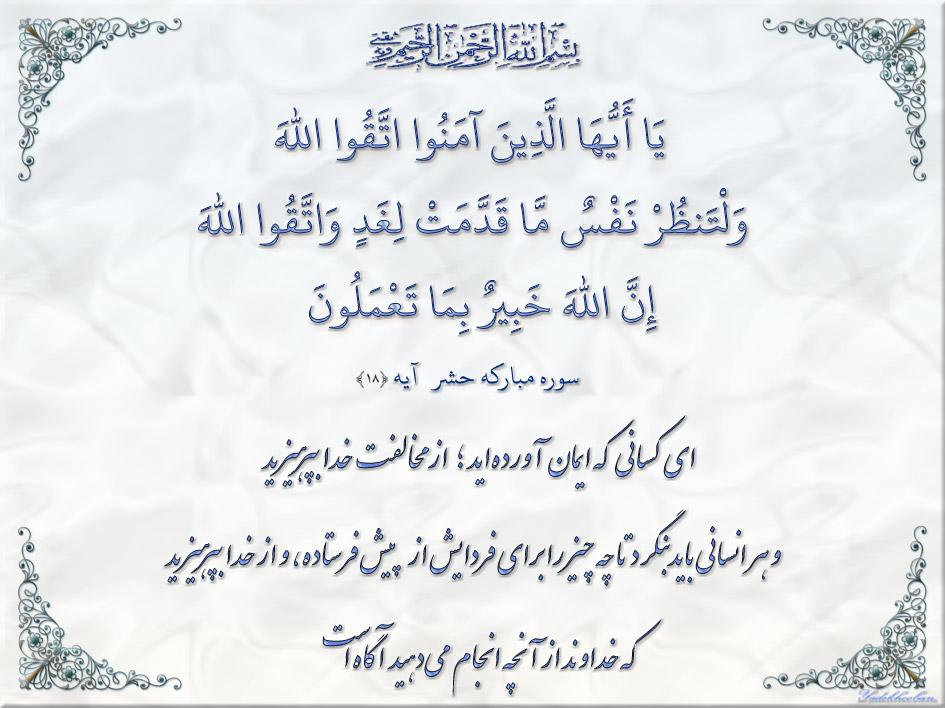 بِسْمِ اللهِ الرَّحْمنِ الرَّحِیمِ
يَا أَيُّهَا الَّذِينَ آمَنُوا اتَّقُوا اللهَ
وَلْتَنظُرْ نَفْسٌ مَّا قَدَّمَتْ لِغَدٍ وَاتَّقُوا اللهَ
إِنَّ اللهَ خَبِيرٌ بِمَا تَعْمَلُونَ
سوره مبارکه حشر آیه ﴿۱۸﴾
ای کسانی که ایمان آورده اید؛ از مخالفت خدا بپرهیزید
و هر انسانی باید بنگرد تا چه چیز را برای فردایش از پیش فرستاده، و از خدا بپرهیزید
که خداوند از آنچه انجام می دهید آگاه است